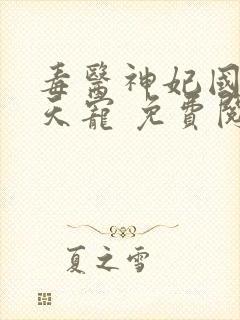 毒醫神妃國
天寵 免費閱
夏之雪